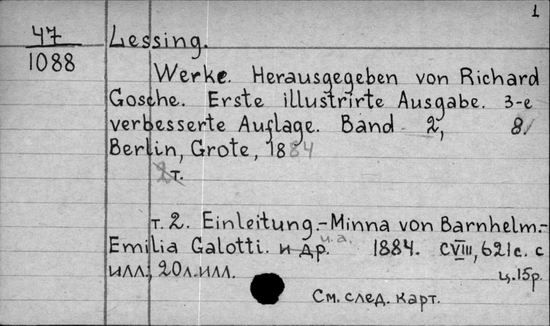 1
47
1088
Lessing.
Werke. Herausgegeben von Richard
Gosche. Erste illustrirte Ausgabe. 3-e
verbesserte Auflage. Band 2, 8/
Berlin, Grote, 1884
2 т.
т. 2. Einleitung.-Minna von Barnhelm.-
Emilia Galotti. и др. u.a. 1884. CVIII, 621 с. с
илл., 20 л. илл. ц.15р.
См. след. карт.